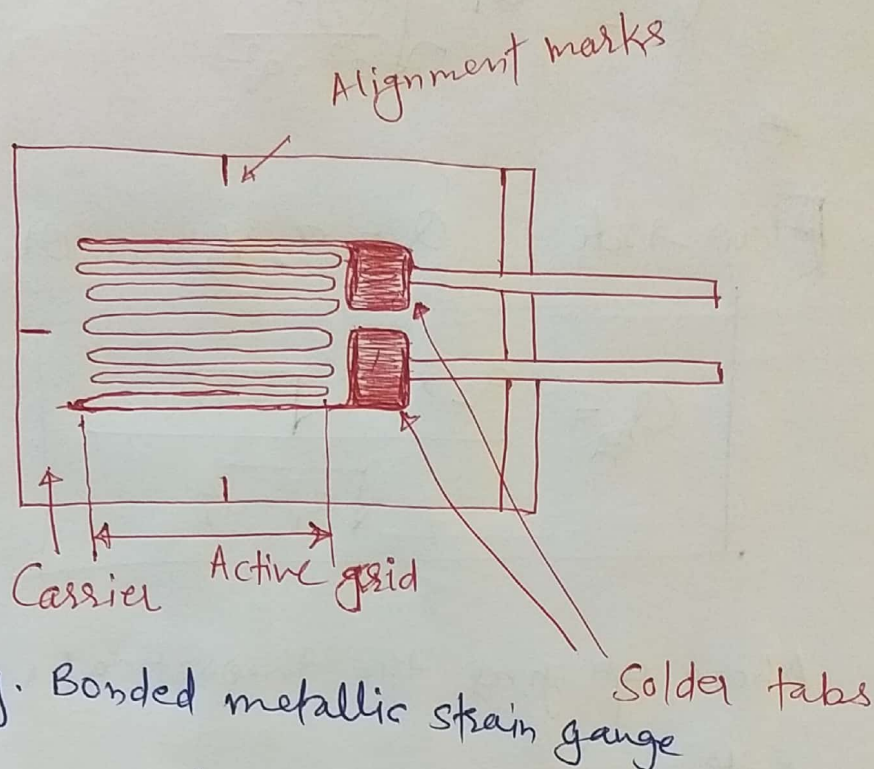 Alignment marks
Carrier
Active grid
Solder tabs
g. Bonded metallic strain gauge